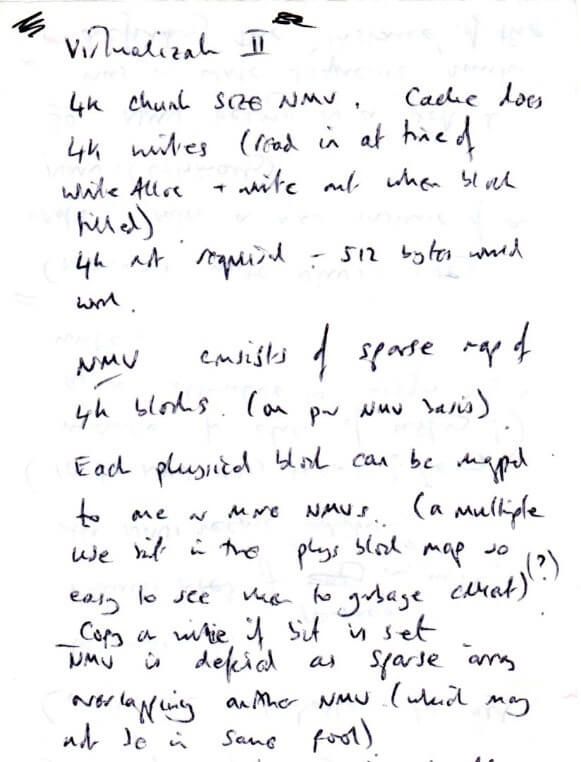 Virtualizatn II
4k chunk size NMV. Cache does
4k writes (read in at time of
write Alloc + write out when block
filled)
4k not required - 512 bytes would
work.
NMV consists of sparse map of
4k blocks. (on per NMV basis)
Each physical block can be mapped
to one or more NMVs. (a multiple
use bit in the phys block map so
easy to see when to garbage collect) (?)
- Copy on write if bit is set
NMV is defined as sparse array
overlapping another NMV (which may
not be in same pool)